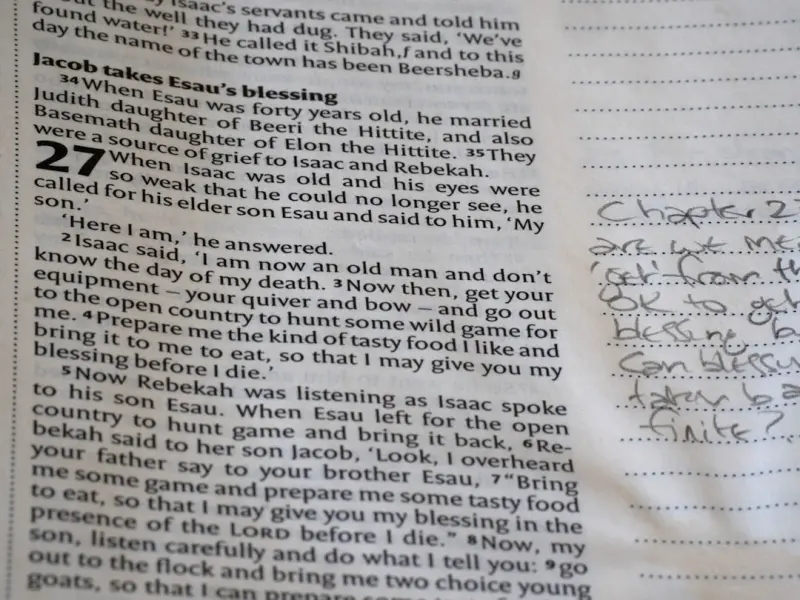 Isaac's servants came and told him
the well they had dug. They said, ‘We've
found water!’ 33 He called it Shibah,f and to this
day the name of the town has been Beersheba.g
Jacob takes Esau's blessing
34 When Esau was forty years old, he married
Judith daughter of Beeri the Hittite, and also
Basemath daughter of Elon the Hittite. 35 They
were a source of grief to Isaac and Rebekah.
27 When Isaac was old and his eyes were
so weak that he could no longer see, he
called for his elder son Esau and said to him, ‘My
son.’
‘Here I am,’ he answered.
2 Isaac said, ‘I am now an old man and don't
know the day of my death. 3 Now then, get your
equipment – your quiver and bow – and go out
to the open country to hunt some wild game for
me. 4 Prepare me the kind of tasty food I like and
bring it to me to eat, so that I may give you my
blessing before I die.’
5 Now Rebekah was listening as Isaac spoke
to his son Esau. When Esau left for the open
country to hunt game and bring it back, 6 Re-
bekah said to her son Jacob, ‘Look, I overheard
your father say to your brother Esau, 7 “Bring
me some game and prepare me some tasty food
to eat, so that I may give you my blessing in the
presence of the LORD before I die.” 8 Now, my
son, listen carefully and do what I tell you: 9 go
out to the flock and bring me two choice young
goats, so that I can prepare some
Chapter 2
are we
'get' from th
OK to get
blessing b
Can blessin
taken ba
finite?